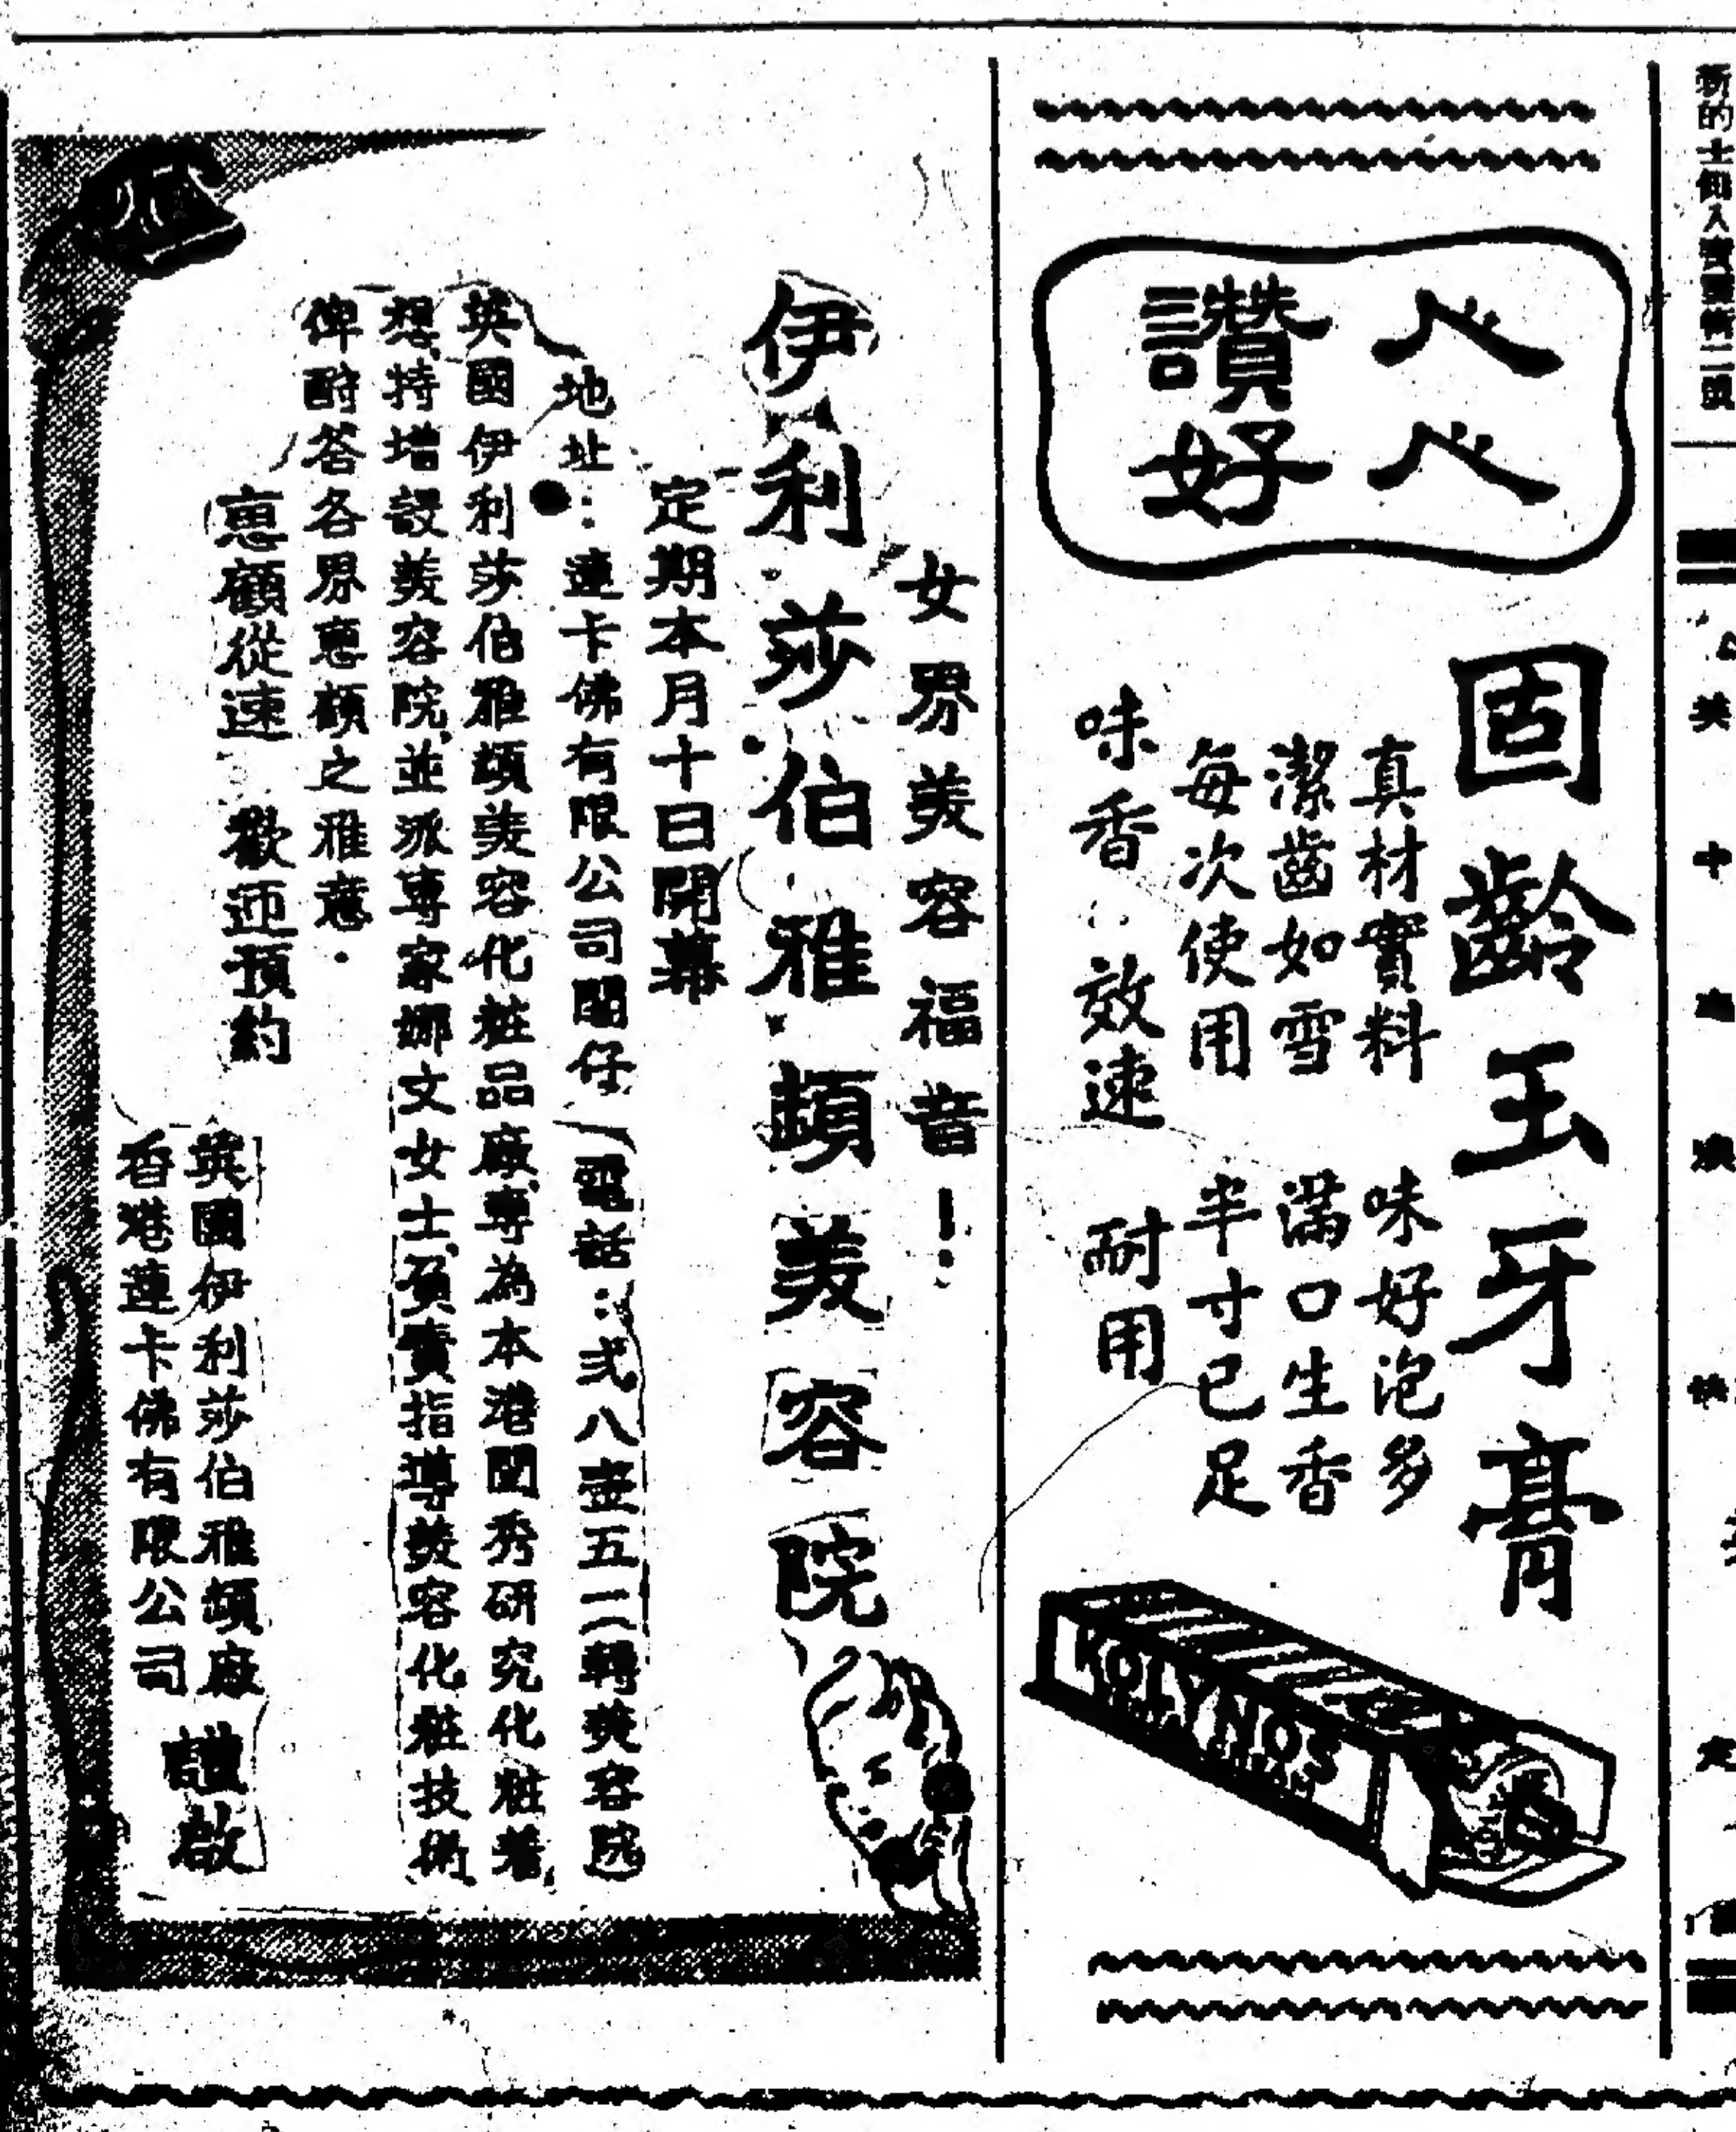 人人
讚好
固齡玉牙膏
真材實料 味好泡多
潔齒如雪 滿口生香
每次使用 半寸已足
味香 效速 耐用
KOLYNOS
女界美容福音！
伊利莎伯雅頓美容院
定期本月十日開幕
地址：連卡佛有限公司閣仔（電話：弍八壹五二轉美容院
英國伊利莎伯雅頓美容化粧品廠，專為本港閨秀研究化粧着
想，特增設美容院，並派專家娜文女士，負責指導美容化粧技術
俾酧答各界惠顧之雅意．
惠顧從速 歡迎預約
英國伊利莎伯雅頓廠
香港連卡佛有限公司
謹啟